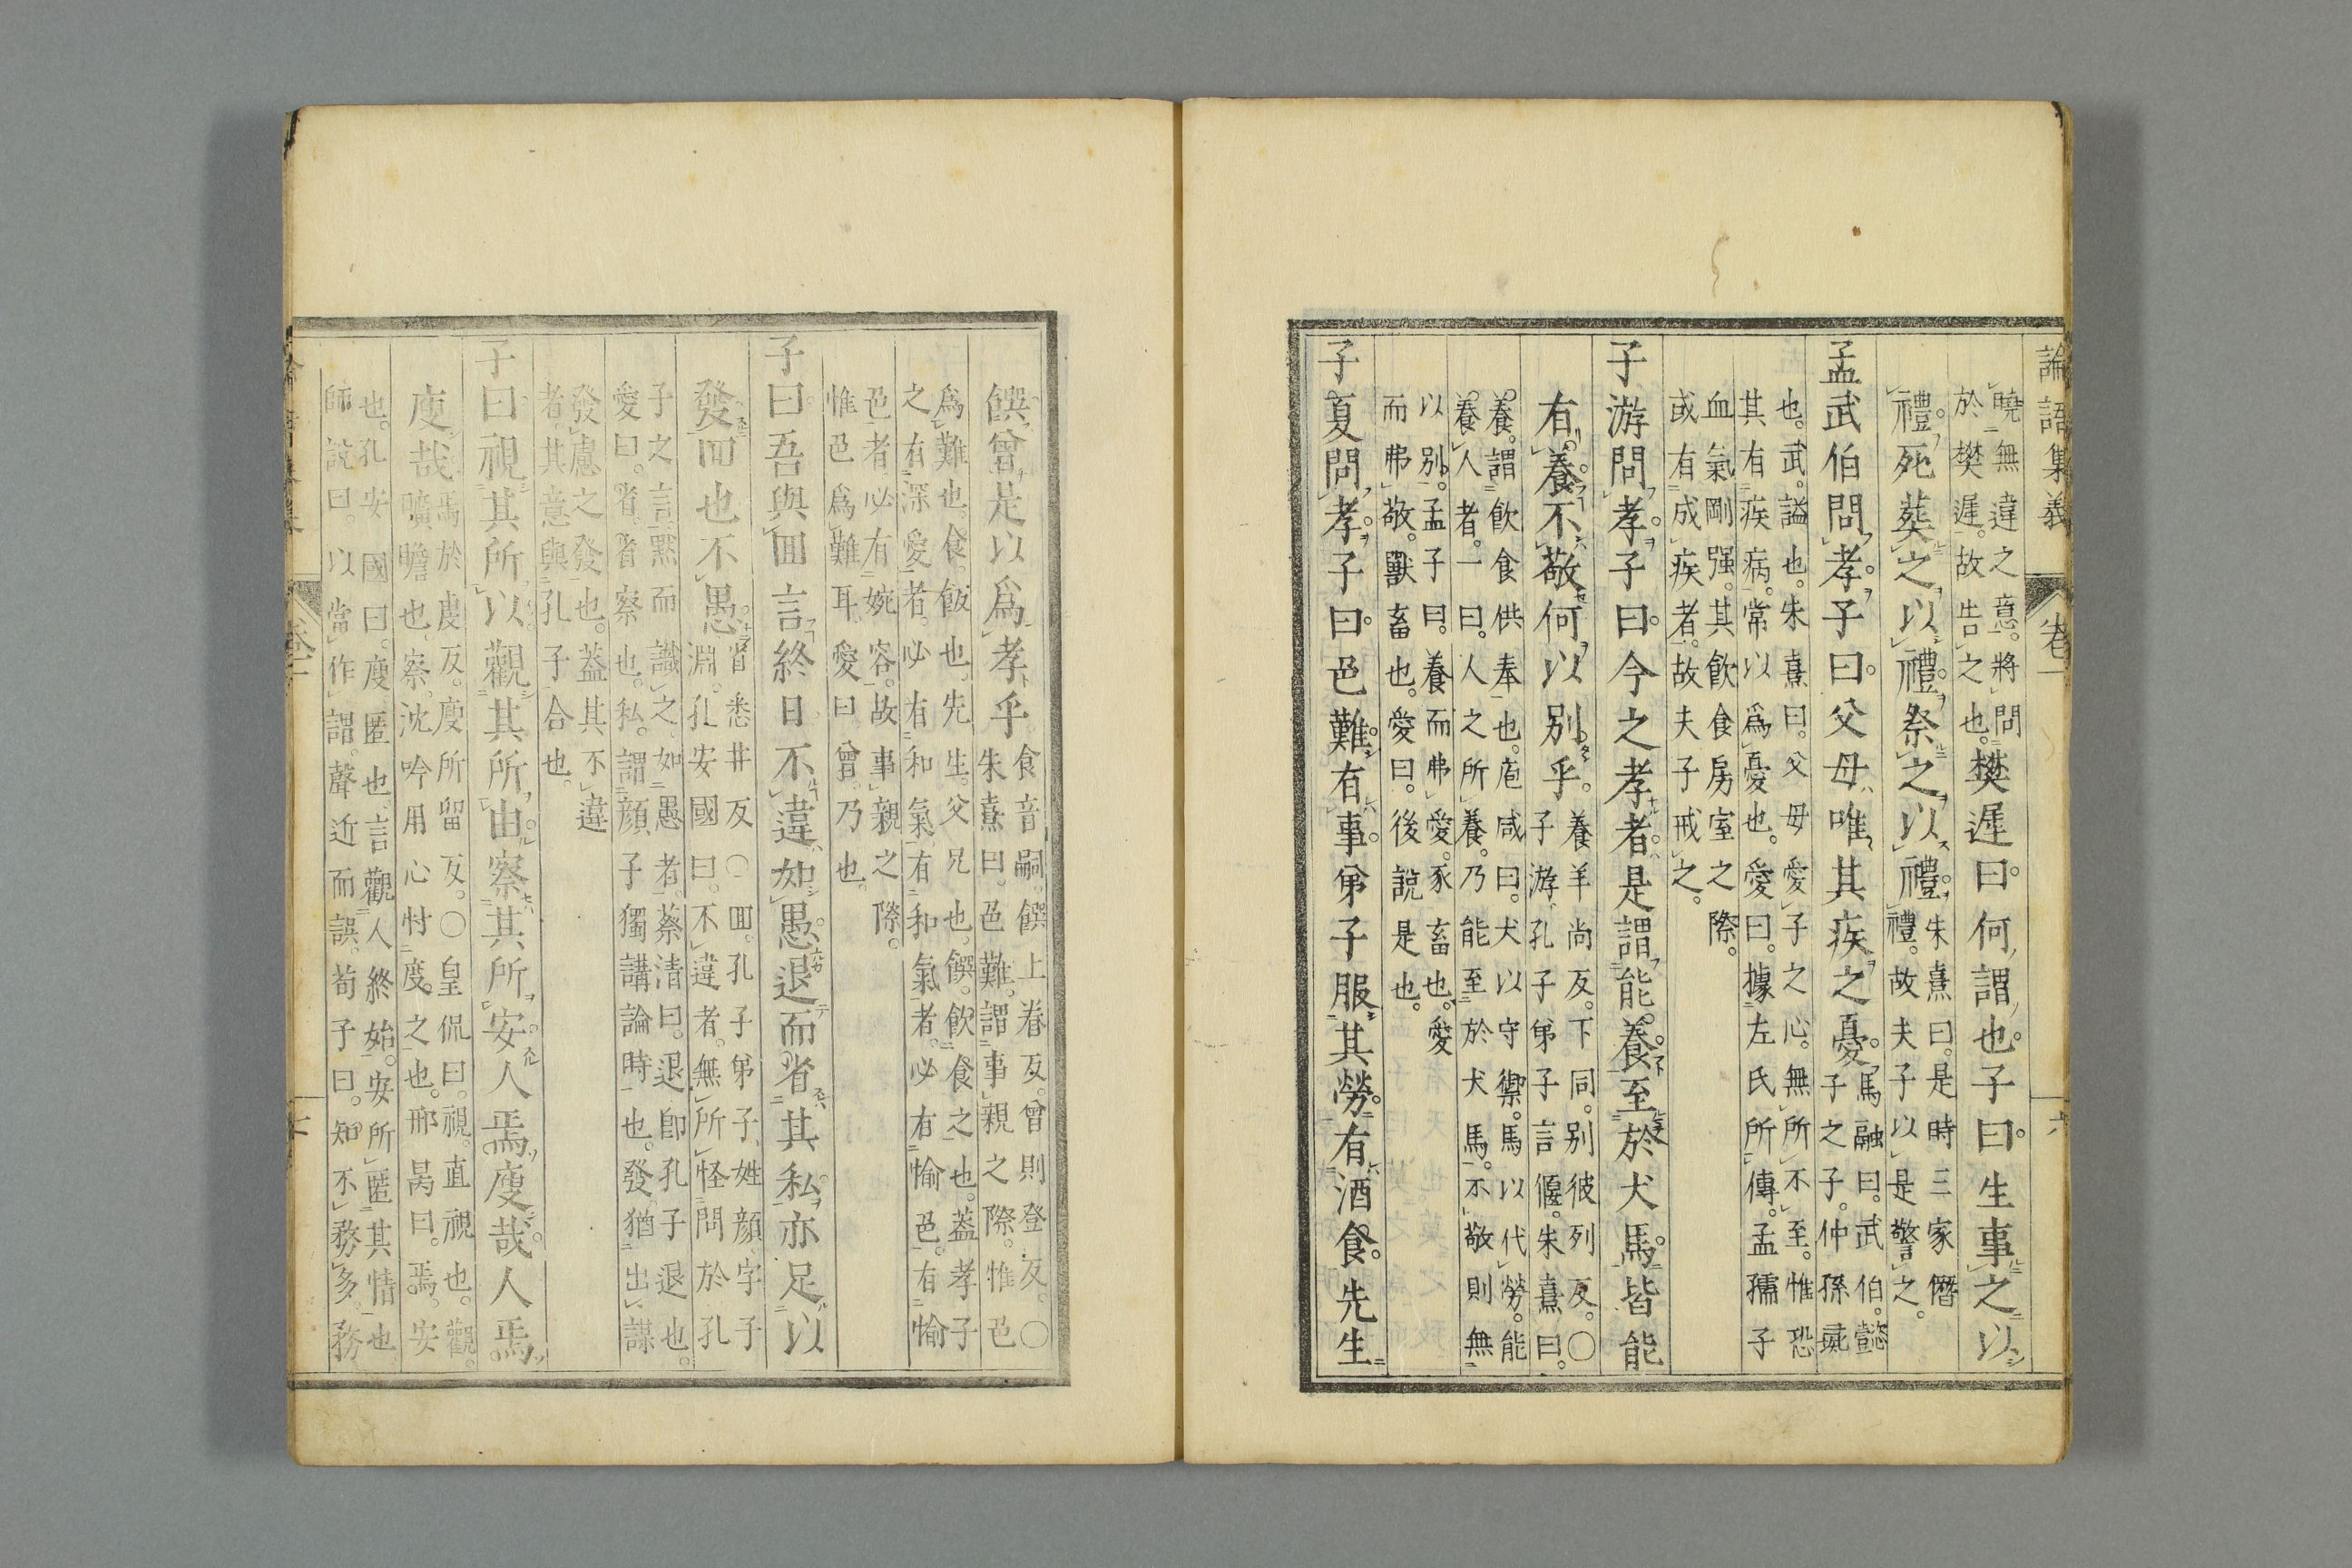 論語集義　卷一　六
曉無違之意。將問
於樊遲。故告之也。
樊遲曰。何謂也。子曰。生事之以
禮。死葬之以禮。祭之以禮。
朱熹曰。是時三家僭
禮。故夫子以是警之。
孟武伯問孝。子曰。父母唯其疾之憂。
馬融曰。武伯。懿
子之子。仲孫彘
也。武。謚也。朱熹曰。父母愛子之心。無所不至。惟恐
其有疾病。常以爲憂也。愛曰。據左氏所傳。孟孺子
血氣剛强。其飮食房室之際。
或有成疾者。故夫子戒之。
子游問孝。子曰。今之孝者。是謂能養。至於犬馬。皆能
有養。不敬何以別乎。
養羊尚反。下同。別彼列反。○
子游。孔子弟子言偃。朱熹曰。
養。謂飮食供奉也。庖咸曰。犬以守禦。馬以代勞。能
養人者。一曰。人之所養。乃能至於犬馬。不敬則無
以別。孟子曰。養而弗愛。豕畜也。愛
而弗敬。獸畜也。愛曰。後說是也。
子夏問孝。子曰。色難。有事。弟子服其勞。有酒食。先生
饌。曾是以爲孝乎。
食音嗣。饌上眷反。曾則登反。○
朱熹曰。色難。謂事親之際。惟色
爲難也。食。飯也。先生。父兄也。饌。飮食之也。蓋孝子
之有深愛者。必有和氣。有和氣者。必有愉色。有愉
色者。必有婉容。故事親之際。
惟色爲難耳。愛曰。曾。乃也。
子曰。吾與回言終日。不違如愚。退而省其私。亦足以
發。回也不愚。
省悉井反。○回。孔子弟子。姓顏。字子
淵。孔安國曰。不違者。無所怪問於孔
子之言。默而識之。如愚者。蔡清曰。退卽孔子退也。
愛曰。省。省察也。私。謂顏子獨講論時也。發猶出。謀
發慮之發也。蓋其不違
者。其意與孔子合也。
子曰。視其所以。觀其所由。察其所安。人焉廋哉。人焉
廋哉。
焉於虔反。廋所留反。○皇侃曰。視。直視也。觀。
曠瞻也。察。沈吟用心忖度之也。邢昺曰。焉。安
也。孔安國曰。廋。匿也。言觀人終始。安所匿其情也。
師說曰。以當作謂。聲近而誤。荀子曰。知不務多。務